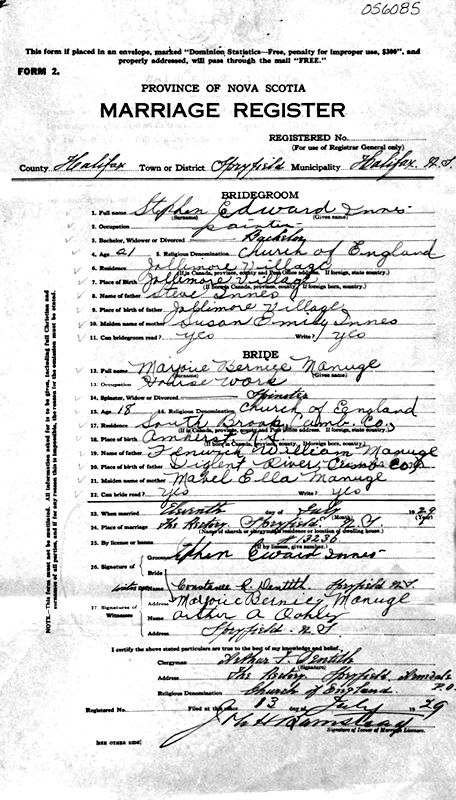 056085
This form if placed in an envelope, marked "Dominion Statistics—Free, penalty for improper use, $300", and
properly addressed, will pass through the mail "FREE."
FORM 2.
PROVINCE OF NOVA SCOTIA
MARRIAGE REGISTER
REGISTERED No.
(For use of Registrar General only)
County Halifax Town or District Spryfield Municipality Halifax N.S.
BRIDEGROOM
1. Full name Stephen Edward Innes
(Surname) (Given name)
2. Occupation painter
3. Bachelor, Widower or Divorced Bachelor
4. Age 21 5. Religious Denomination Church of England
6. Residence Jollimore Village
(If in Canada, province, county and Post Office address. If foreign, state country.)
7. Place of Birth Jollimore Village
(If born in Canada, province, county. If foreign born, country.)
8. Name of father Steve Innes
9. Place of birth of father Jollimore Village
10. Maiden name of mother Susan Emily Innes
11. Can bridegroom read? yes Write? yes
BRIDE
12. Full name Marjorie Bernice Manugl
(Surname) (Given name)
13. Occupation House Work
14. Spinster, Widow or Divorced Spinster
15. Age 18 16. Religious Denomination Church of England
17. Residence South Brook Cumb. Co.
(If in Canada, province, county and Post Office address. If foreign, state country.)
18. Place of birth Amherst N.S.
(If born in Canada, province, county. If foreign born, country.)
19. Name of father Fenwick William Manugl
20. Place of birth of father River, Cumb. Co.
21. Maiden name of mother Mabel Ella Manugl
22. Can bride read? yes Write? yes
23. When married Eleventh day of July 1929
(Month) (Year)
24. Place of marriage The Rectory Spryfield N.S.
(Name of church or clergyman's residence or location of dwelling house.)
25. By license or banns #13236
(If by license, give number.)
26. Signature of
Groom Stephen Edward Innes
Bride
witness Constance R Dentith Spryfield N.S.
Address Marjorie Bernice Manugl
27. Signatures of Witnesses
Name Arthur A
Address Spryfield N.S.
I certify the above stated particulars are true to the best of my knowledge and belief.
Clergyman Arthur T. Dentith
(Signature)
Address The Rectory Spryfield, Armdale P.O.
Religious Denomination Church of England.
Registered No. Filed at this office 13 day of July 1929
Signature of Issuer of Marriage Licenses.
[SEE OTHER SIDE]
NOTE.—This form must not be mutilated. All information asked for is to be given, including full Christian and
surnames of all parties, and if for any reason this is impossible, the reason for the omission must be stated.